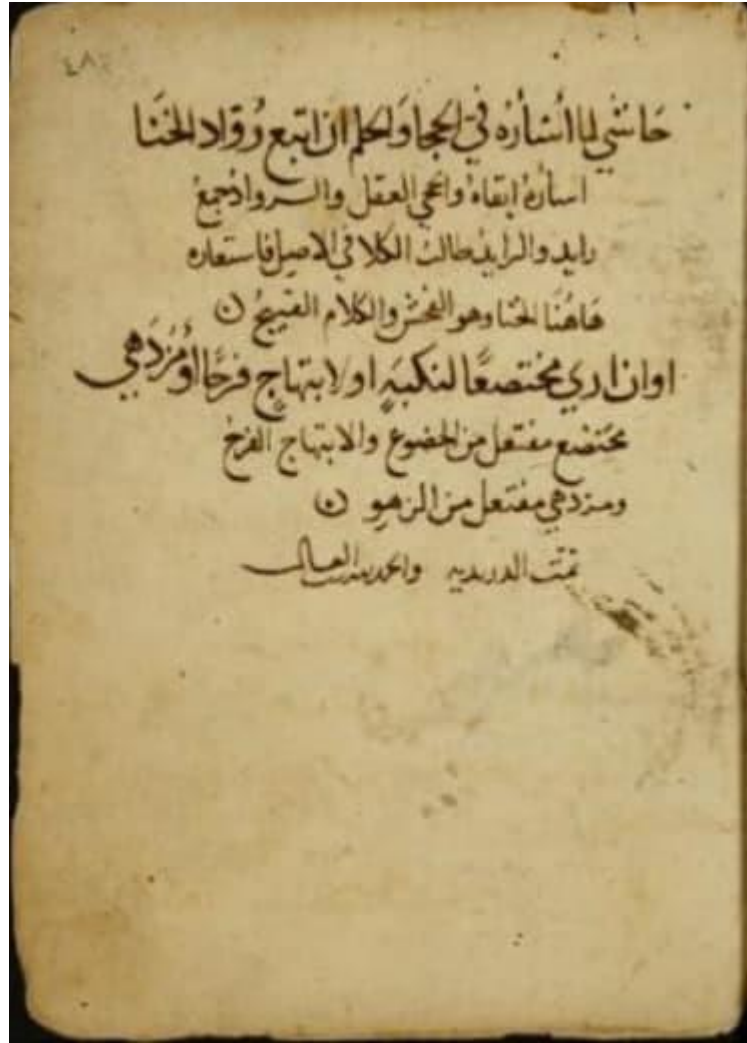 ٤٨
حَاشي لما أسأره في الحجا والحلم ان اتبع رُوّاد الخنا
اسأره ابقاه والحجى العقل والرواد جمع
رايد والرايد طالب الكلا في الاصل فاستعاره
هاهنا للخنا وهو الفحش والكلام القبيح
او ان اري مختضعًا لنكبةٍ او لابتهاجٍ فرحًا أو مُزدَهي
مختضع مفتعل من الخضوع والابتهاج الفرح
ومزدهي مفتعل من الزهو
تمت الدريديه والحمد لله